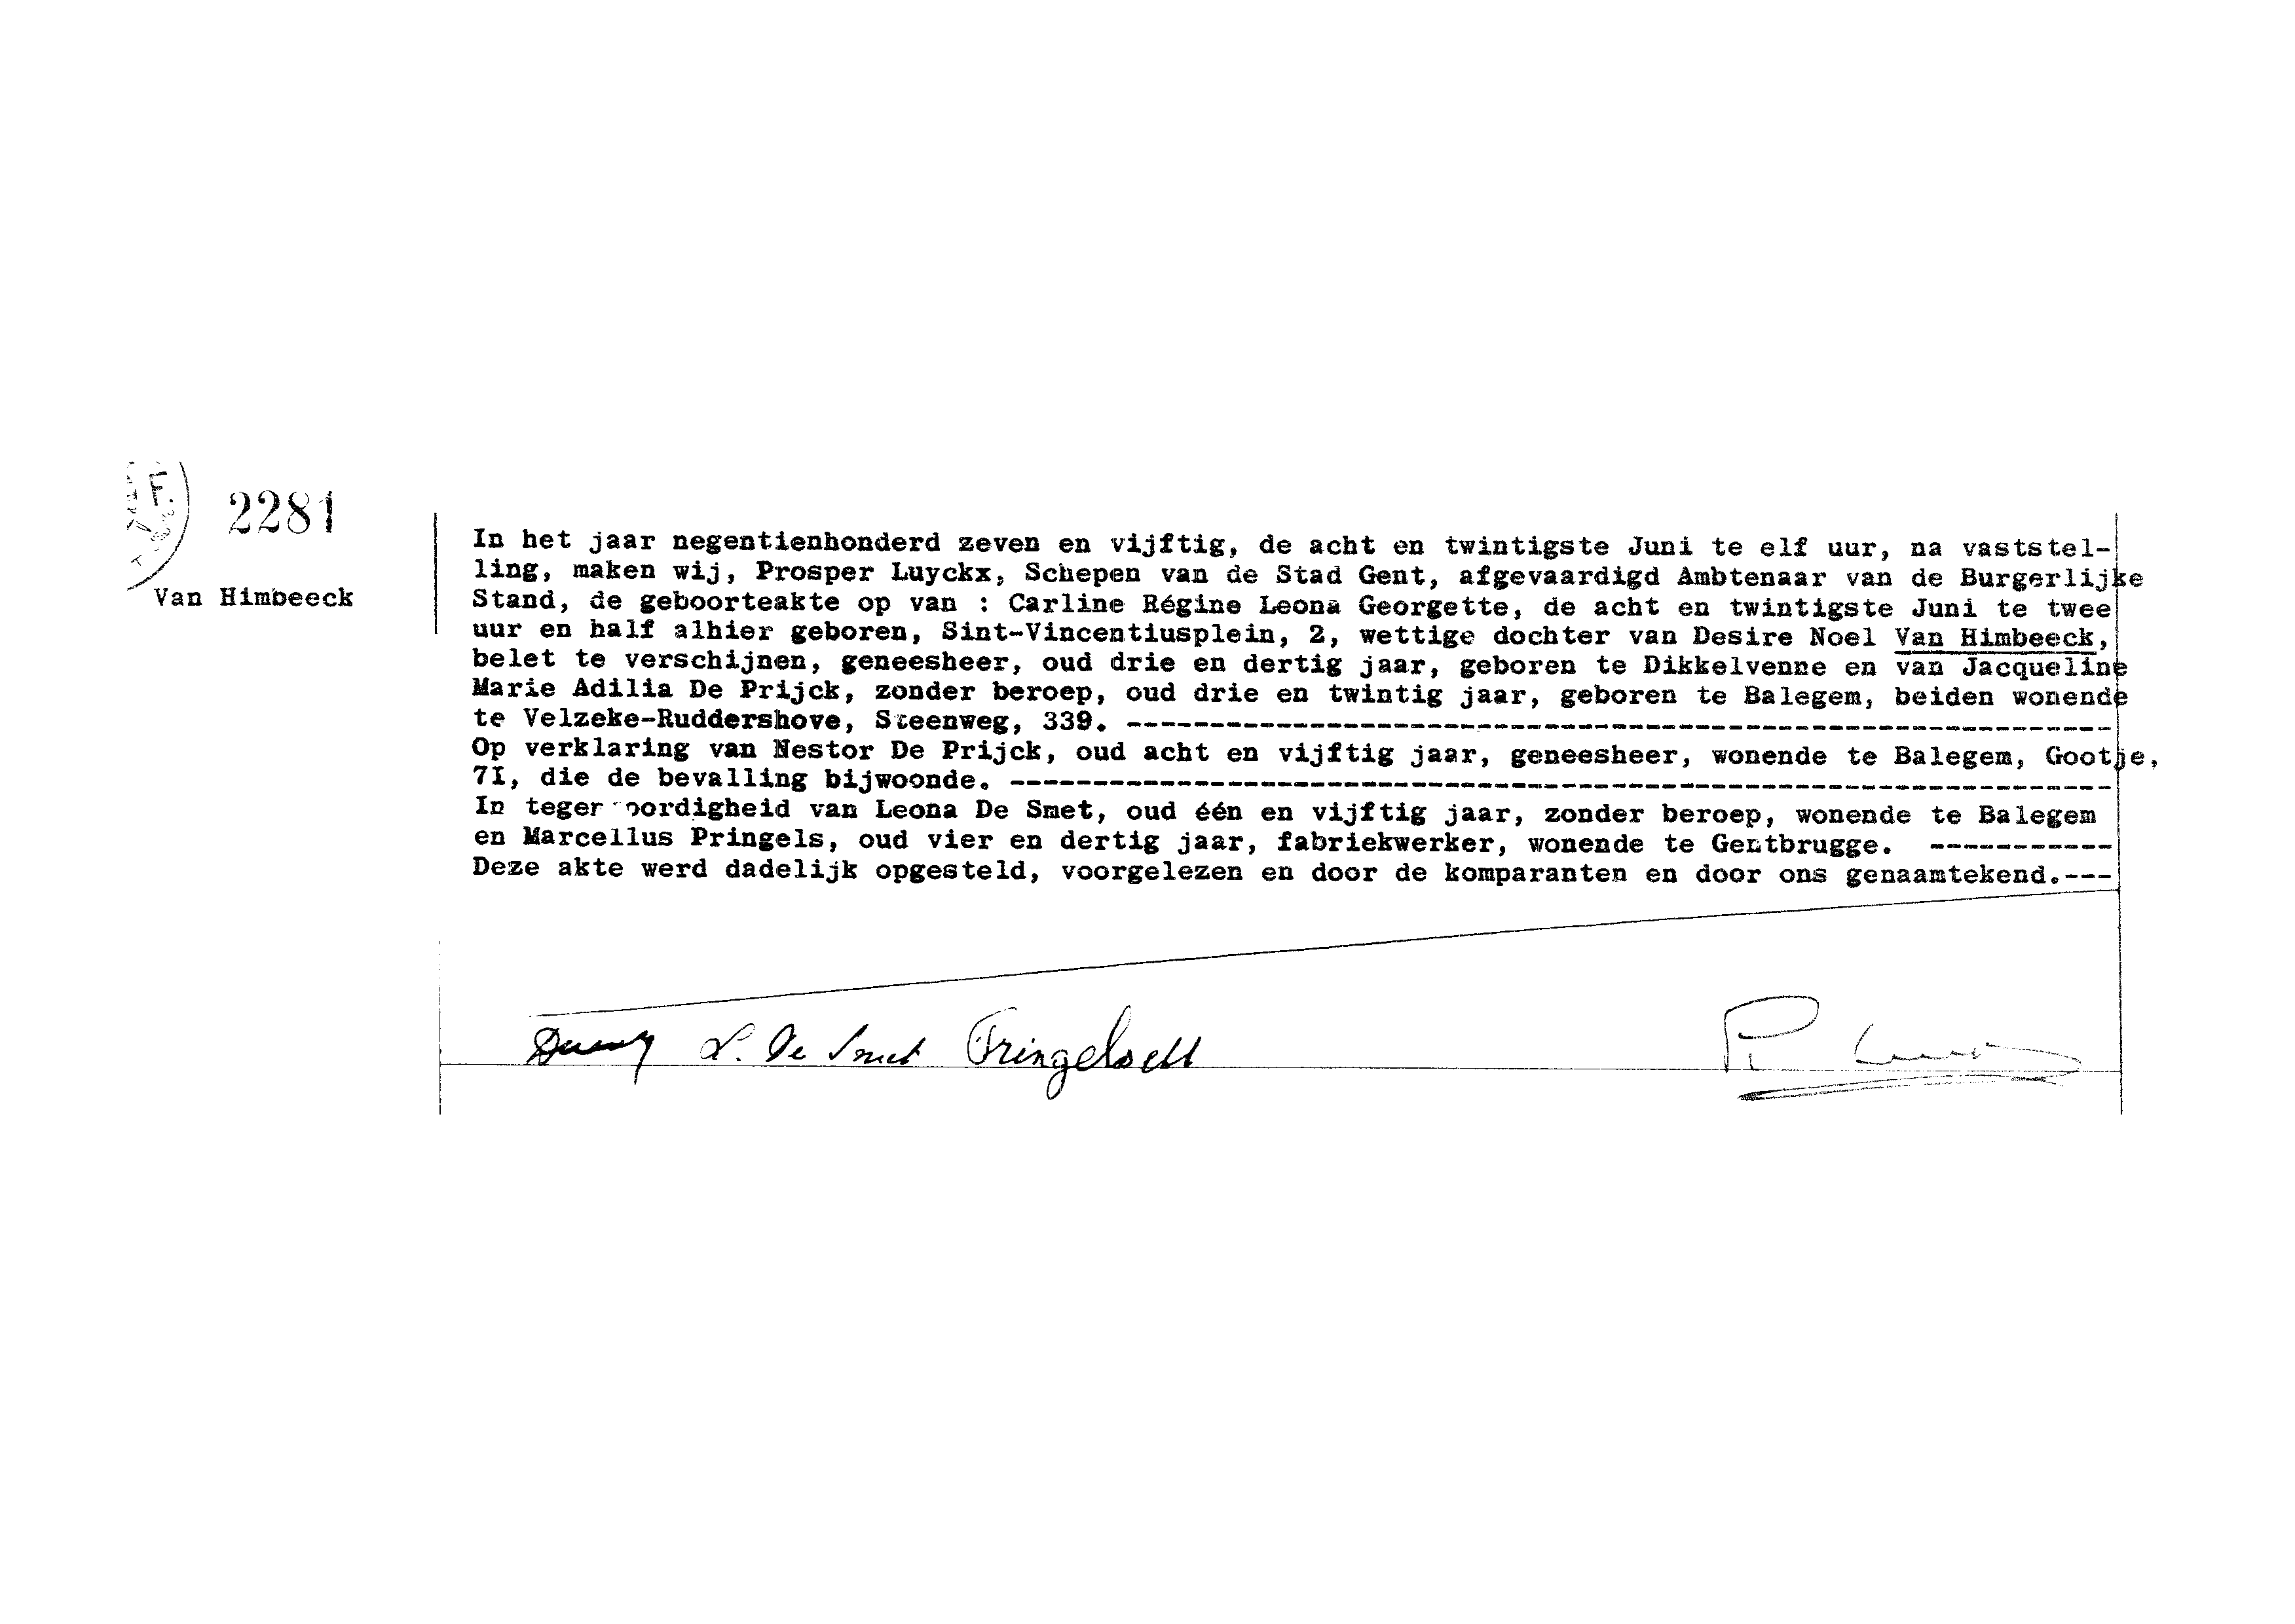 2281
Van Himbeeck
In het jaar negentienhonderd zeven en vijftig, de acht en twintigste Juni te elf uur, na vaststel-
ling, maken wij, Prosper Luyckx, Schepen van de Stad Gent, afgevaardigd Ambtenaar van de Burgerlijke
Stand, de geboorteakte op van : Carline Régine Leona Georgette, de acht en twintigste Juni te twee
uur en half alhier geboren, Sint-Vincentiusplein, 2, wettige dochter van Desire Noel Van Himbeeck,
belet te verschijnen, geneesheer, oud drie en dertig jaar, geboren te Dikkelvenne en van Jacqueline
Marie Adilia De Prijck, zonder beroep, oud drie en twintig jaar, geboren te Balegem, beiden wonende
te Velzeke-Ruddershove, Steenweg, 339. ----------------------------------------------------------
Op verklaring van Nestor De Prijck, oud acht en vijftig jaar, geneesheer, wonende te Balegem, Gootje,
7I, die de bevalling bijwoonde. -----------------------------------------------------------------
In tegenwoordigheid van Leona De Smet, oud één en vijftig jaar, zonder beroep, wonende te Balegem
en Marcellus Pringels, oud vier en dertig jaar, fabriekwerker, wonende te Gentbrugge. -----------
Deze akte werd dadelijk opgesteld, voorgelezen en door de komparanten en door ons genaamtekend.---
L. De Smet